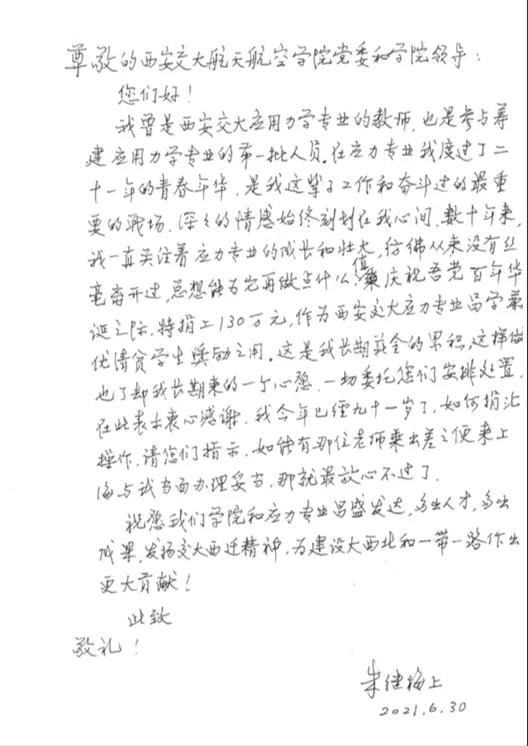 尊敬的西安交大航天航空学院党委和学院领导：
您们好！
我曾是西安交大应用力学专业的教师，也是参与筹
建应用力学专业的第一批人员。在应力专业我度过了二
十一年的青春年华，是我这辈子工作和奋斗过的最重
要的战场，深々的情感始终刻划在我心间。数十年来，
我一直关注着应力专业的成长和壮大，仿佛从来没有丝
毫离开过，总想能为它再做点什么，值此庆祝吾党百年华
诞之际，特捐上130万元，作为西安交大应力专业品学兼
优清贫学生奖励之用。这是我长期薪金的累积，这样做
也了却我长期来的一个心愿。一切委托您们安排处置，
在此表示衷心感谢。我今年已经九十一岁了，如何捐汇
操作，请您们指示，如能有那位老师乘出差之便来上
海与我当面办理妥当，那就最放心不过了。
祝愿我们学院和应力专业昌盛发达，多出人才，多出
成果，发扬交大西迁精神，为建设大西北和一带一路作出
更大贡献！
此致
敬礼！
朱继梅上
2021.6.30